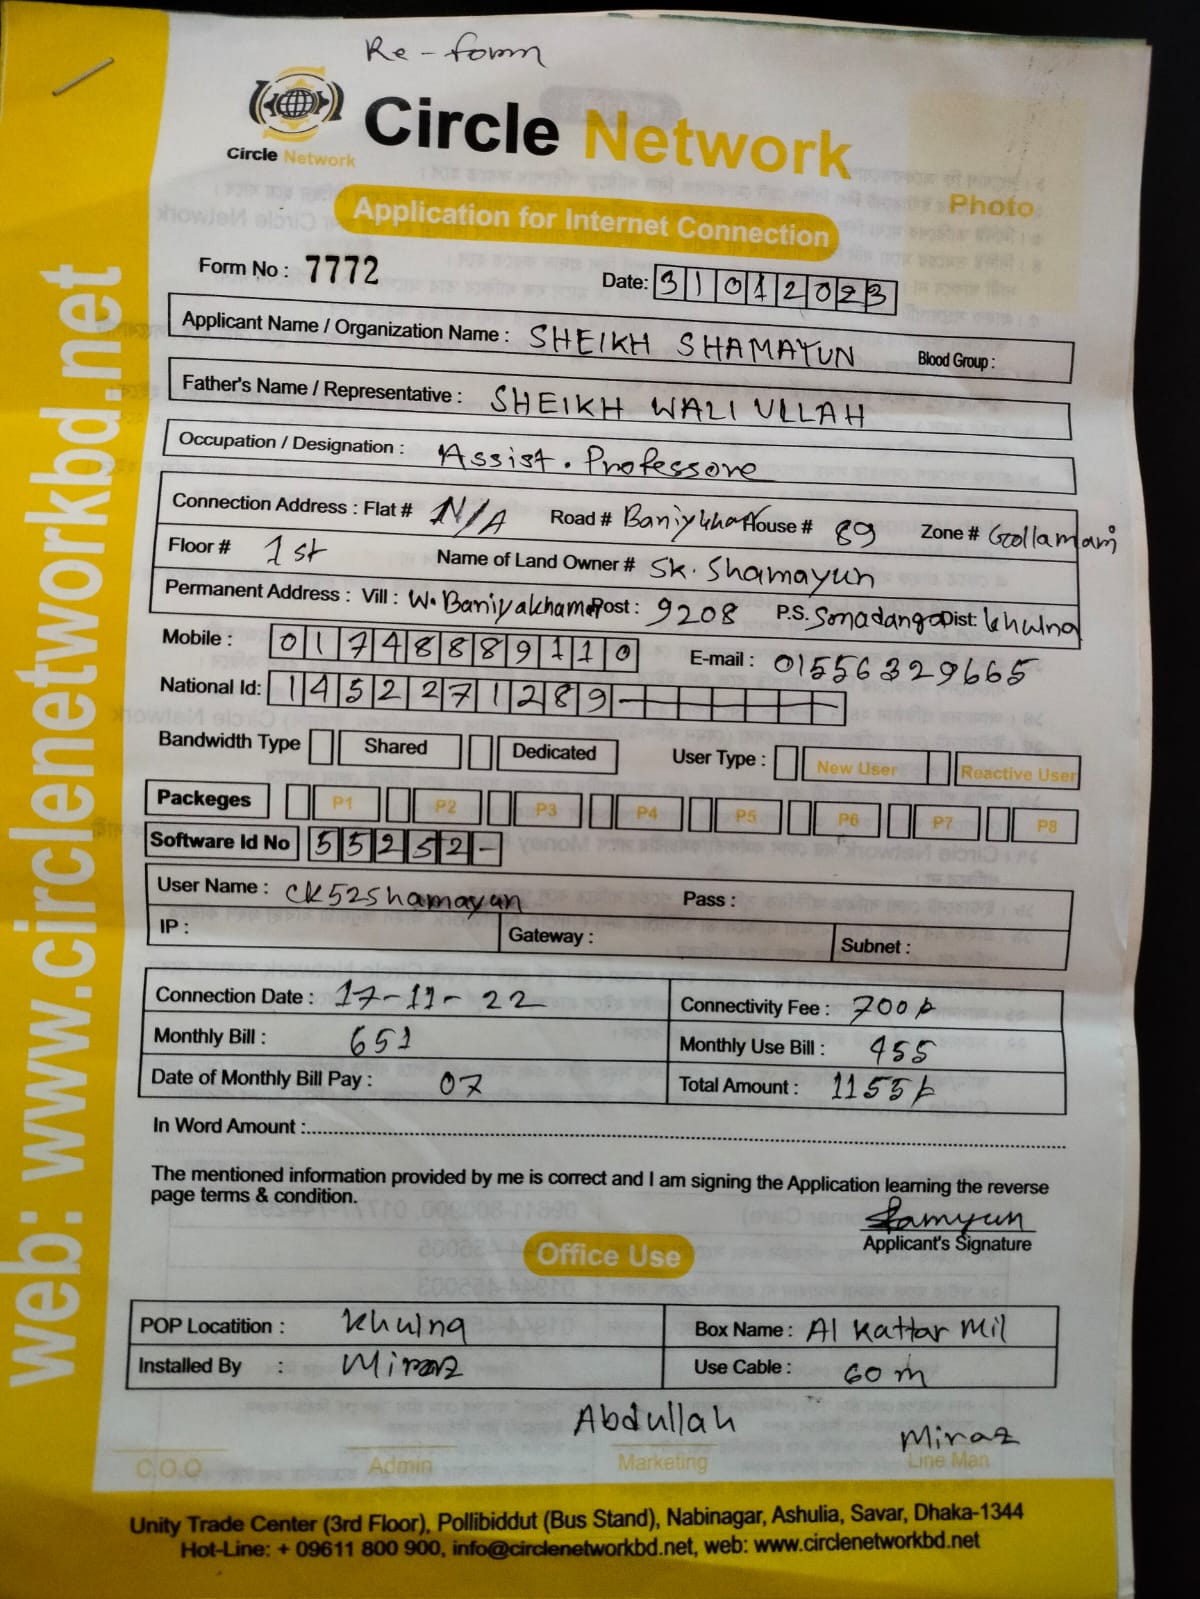 Re-form
Circle Network
Circle Network
Photo
Application for Internet Connection
Form No : 7772 Date: 31 01 2023
Applicant Name / Organization Name : SHEIKH SHAMAYUN Blood Group :
Father's Name / Representative : SHEIKH WALI ULLAH
Occupation / Designation : Assist. Professore
Connection Address : Flat # N/A Road # Baniykhamar House # 89 Zone # Gollamari
Floor # 1st Name of Land Owner # SK. Shamayun
Permanent Address : Vill : W. Baniyakhamar Post : 9208 P.S. Sonadanga Dist: khulna
Mobile : 01748889110 E-mail : 01556329665
National Id: 1452271289
Bandwidth Type Shared Dedicated User Type : New User Reactive User
Packeges P1 P2 P3 P4 P5 P6 P7 P8
Software Id No 55252-
User Name : CK52shamayun Pass :
IP : Gateway : Subnet :
Connection Date : 17-11-22 Connectivity Fee : 700/-
Monthly Bill : 651 Monthly Use Bill : 455
Date of Monthly Bill Pay : 07 Total Amount : 1155/-
In Word Amount :
The mentioned information provided by me is correct and I am signing the Application learning the reverse
page terms & condition.
Shamyun
Applicant's Signature
Office Use
POP Locatition : Khulna Box Name : Al Kattar Mil
Installed By : Miraz Use Cable : 60 m
Abdullah Miraz
C.O.O Admin Marketing Line Man
Unity Trade Center (3rd Floor), Pollibiddut (Bus Stand), Nabinagar, Ashulia, Savar, Dhaka-1344
Hot-Line: + 09611 800 900, info@circlenetworkbd.net, web: www.circlenetworkbd.net
web: www.circlenetworkbd.net